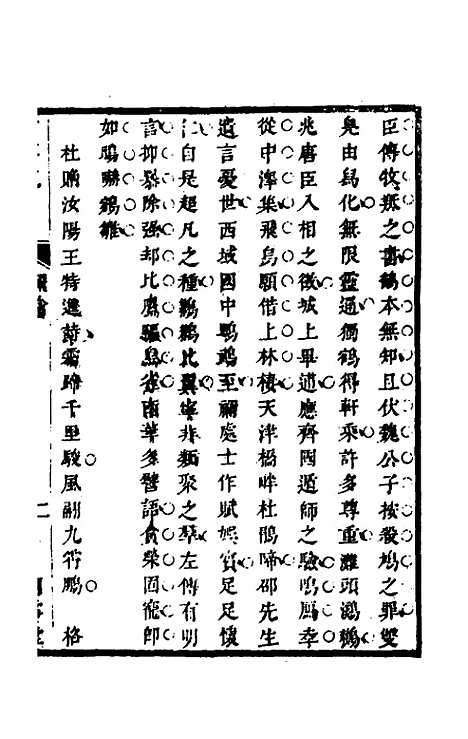 臣傳牧叛之書鶴本無知且伏魏公子按殺鳩之罪雙
鳧由為化無限靈通獨鶴得軒乘許多尊重灘頭鸂鶒
兆唐臣入相之徵城上畢逋應齊國遁師之驗鳴鳳幸
從中澤集飛烏願借上林棲天津橋畔杜鵑啼邵先生
遺言憂世西域國中鸚鵡至禰處士作賦娛賓足足懷
仁自是超凡之種鶼鶼比翼寧非類聚之羣左傳有明
言抑暴除强却比鷹驅鳥雀南華多譬語貪榮固寵即
如鴟嚇鵷雛
杜贈汝陽王特進詩霜蹄千里駿風翮九霄鵬 格
二